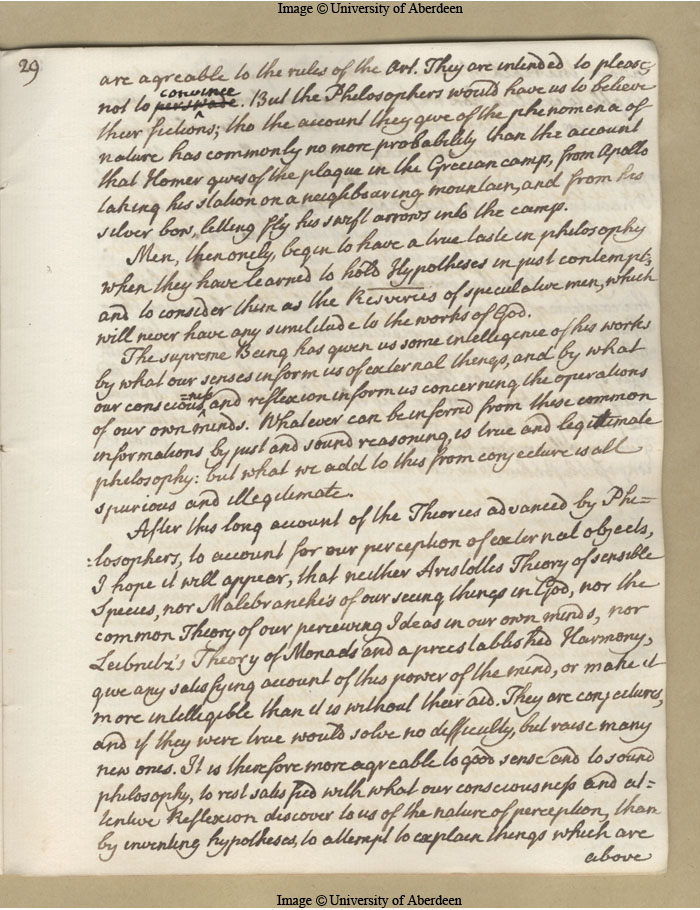 Image © University of Aberdeen
29
are agreable to the rules of the Art. They are intended to please
convince
not to perswade. But the Philosophers would have us to believe
their fictions; tho the account they give of the phenomena of
nature has commonly no more probability than the account
that Homer gives of the plague in the Grecian camp, from Apollo
taking his station on a neighbouring mountain, and from his
silver bow, letting fly his swift arrows into the camp.
Men, then onely, begin to have a true taste in philosophy
when they have learned to hold Hypotheses in just contempt;
and to consider them as the Resveries of speculative men, which
will never have any similitude to the works of God.
The supreme Being has given us some intelligence of his works
by what our senses inform us of external things, and by what
=ness
our conscious, and reflexion inform us concerning the operations
of our own minds. Whatever can be inferred from these common
informations by just and sound reasoning, is true and legitimate
philosophy: but what we add to this from conjecture is all
spurious and illegitimate.
After this long account of the Theories advanced by Phi=
=losophers, to account for our perception of external objects,
I hope it will appear, that neither Aristotles Theory of sensible
Species, nor Malebranche's of our seeing things in God, nor the
common Theory of our perceiving Ideas in our own minds, nor
Leibnitz's Theory of Monads and a preestablished Harmony,
give any satisfying account of this power of the mind, or make it
more intelligible than it is without their aid. They are conjectures,
and if they were true would solve no difficulty, but raise many
new ones. It is therefore more agreable to good sense and to sound
philosophy, to rest satisfied with what our consciousness and at=
tentive Reflexion discover to us of the nature of perception, than
by inventing hypotheses, to attempt to explain things which are
above
Image © University of Aberdeen